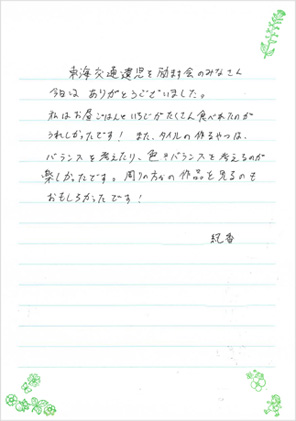 東海交通遺児を励ます会のみなさん
今日は ありがとうございました。
私はお昼ごはんといちごがたくさん食べれたのが
うれしかったです！ また、タイルの作るやつは、
バランスを考えたり、色のバランスを考えるのが
楽しかったです。周りの方の作品を見るのも
おもしろかったです！
紀香